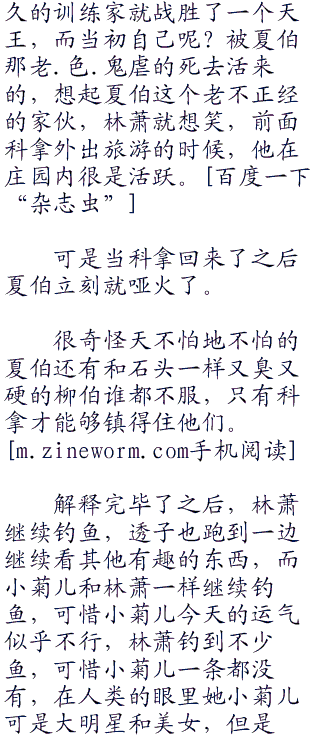 久的训练家就战胜了一个天
王，而当初自己呢？被夏伯
那老.色.鬼虐的死去活来
的，想起夏伯这个老不正经
的家伙，林萧就想笑，前面
科拿外出旅游的时候，他在
庄园内很是活跃。[百度一下
“杂志虫”]
可是当科拿回来了之后
夏伯立刻就哑火了。
很奇怪天不怕地不怕的
夏伯还有和石头一样又臭又
硬的柳伯谁都不服，只有科
拿才能够镇得住他们。
[m.zineworm.com手机阅读]
解释完毕了之后，林萧
继续钓鱼，透子也跑到一边
继续看其他有趣的东西，而
小菊儿和林萧一样继续钓
鱼，可惜小菊儿今天的运气
似乎不行，林萧钓到不少
鱼，可惜小菊儿一条都没
有，在人类的眼里她小菊儿
可是大明星和美女，但是